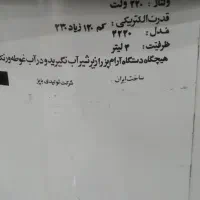 ولتاژ : ۲۲۰ ولت
قدرت الکتریکی : کم ۱۲۰ زیاد ۲۳۰
مدل : ۴۲۲۰
ظرفیت : ۴ لیتر
هیچگاه دستگاه آرام پز را زیر شیر آب نگیرید و در آب غوطه ور نک
ساخت ایران
شرکت تولیدی پریز